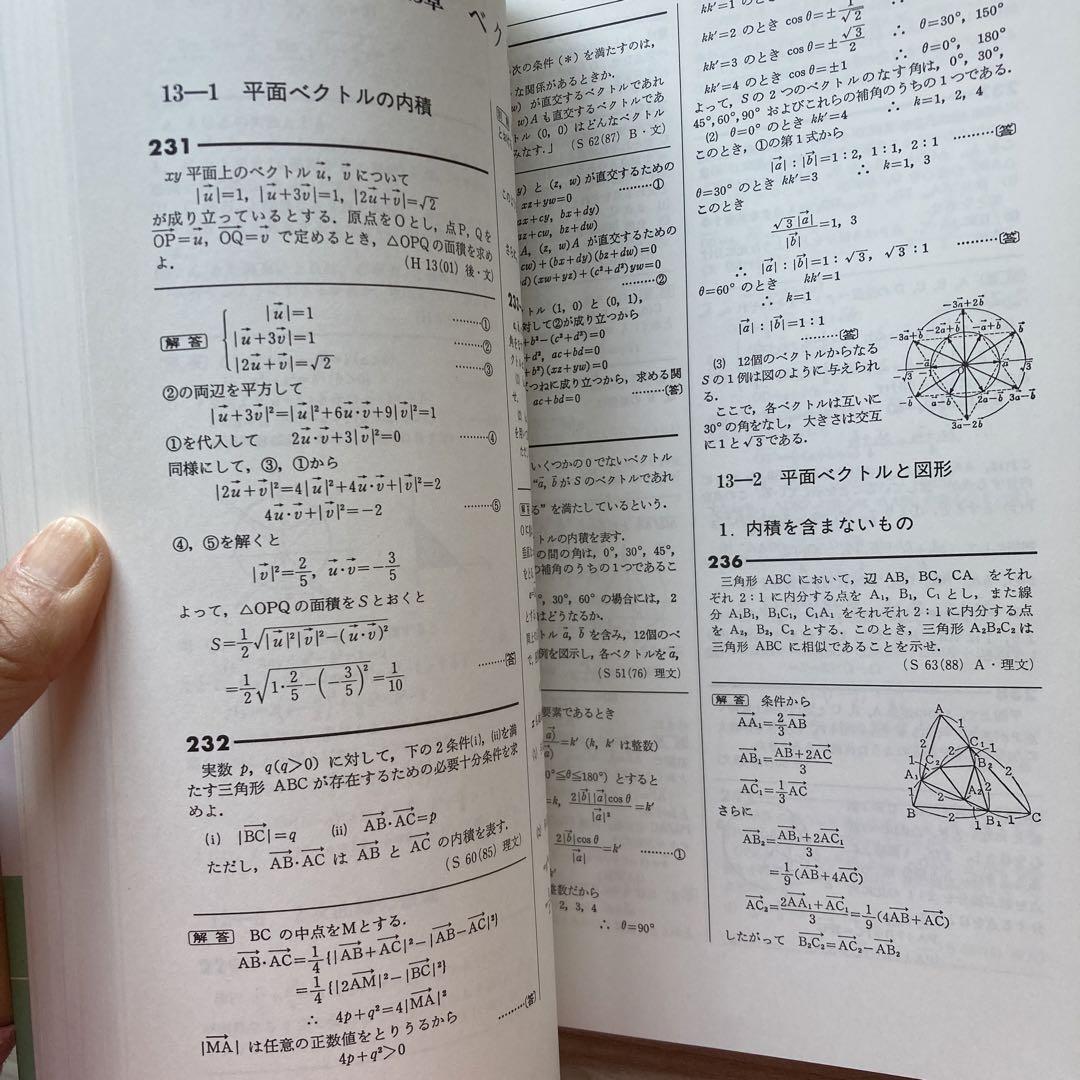 13—1 平面ベクトルの内積
231
xy平面上のベクトル u→, v→ について
|u→|=1, |u→+3v→|=1, |2u→+v→|=√2
が成り立っているとする．原点をOとし，点P, Qを
OP→=u→, OQ→=v→ で定めるとき，△OPQの面積を求め
よ．
(H 13(01) 後・文)
解答
|u→|=1 ………①
|u→+3v→|=1 ………②
|2u→+v→|=√2 ………③
②の両辺を平方して
|u→+3v→|²=|u→|²+6u→·v→+9|v→|²=1
①を代入して 2u→·v→+3|v→|²=0 ………④
同様にして，③，①から
|2u→+v→|²=4|u→|²+4u→·v→+|v→|²=2
4u→·v→+|v→|²=-2 ………⑤
④，⑤を解くと
|v→|²=2/5, u→·v→=-3/5
よって，△OPQ の面積をSとおくと
S=1/2√|u→|²|v→|²-(u→·v→)²
=1/2√1·2/5-(-3/5)²=1/10 ………(答)
232
実数 p, q(q>0) に対して，下の2条件(i), (ii)を満
たす三角形 ABC が存在するための必要十分条件を求
めよ．
(i) |BC→|=q (ii) AB→·AC→=p
ただし，AB→·AC→ は AB→ と AC→ の内積を表す．
(S 60(85) 理文)
解答 BC の中点をMとする．
AB→·AC→=1/4{|AB→+AC→|²-|AB→-AC→|²}
=1/4{|2AM→|²-|BC→|²}
∴ 4p+q²=4|MA→|²
|MA→| は任意の正数値をとりうるから ………(答)
4p+q²>0
次の条件（*）を満たすのは，
な関係があるときか．
w) が直交するベクトルであれ
w)A も直交するベクトルであ
トル (0, 0) はどんなベクトル
みなす．」 (S 62(87) B・文)
y) と (z, w) が直交するための
xz+yw=0 ………①
ax+cy, bx+dy)
az+cw, bz+dw)
A, (z, w)A が直交するための
cw)+(bx+dy)(bz+dw)=0
d)(xw+yz)+(c²+d²)yw=0
………②
トル (1, 0) と (0, 1),
対して②が成り立つから
+b²-(c²+d²)=0
+d², ac+bd=0
+b²)(xz+yw)=0
つねに成り立つから，求める関
ac+bd=0 ………(答)
いくつかの0でないベクトル
“a→, b→がSのベクトルであれ
る”を満たしているという．
トルの内積を表す．
の間の角は，0°, 30°, 45°,
の補角のうちの1つであるこ
°, 30°, 60° の場合には，2
はどうなるか．
トル a→, b→ を含み，12個のベ
例を図示し，各ベクトルをa→,
(S 51(76) 理文)
要素であるとき
=k′ (k, k′ は整数)
0°≦θ≦180°) とすると
=k, 2|b→||a→|cosθ/|a→|²=k′
2|b→|cosθ/|a→|=k′ ………①
整数だから
2, 3, 4
∴ θ=90°
kk′=2 のとき cosθ=±1/√2
kk′=3 のとき cosθ=±√3/2 ∴ θ=30°, 150°
kk′=4 のとき cosθ=±1 ∴ θ=0°, 180°
よって，Sの2つのベクトルのなす角は，0°, 30°,
45°, 60°, 90° およびこれらの補角のうちの1つである．
(2) θ=0° のとき kk′=4 ∴ k=1, 2, 4
このとき，①の第1式から
|a→|:|b→|=1:2, 1:1, 2:1 ………(答)
θ=30° のとき kk′=3 ∴ k=1, 3
このとき
√3|a→|/|b→|=1, 3
∴ |a→|:|b→|=1:√3, √3:1 ………(答)
θ=60° のとき kk′=1
∴ k=1
|a→|:|b→|=1:1 ………(答)
(3) 12個のベクトルからなる
Sの1例は図のように与えられ
る．
ここで，各ベクトルは互いに
30°の角をなし，大きさは交互
に1と√3である．
13—2 平面ベクトルと図形
1. 内積を含まないもの
236
三角形 ABC において，辺 AB, BC, CA をそれ
ぞれ 2:1 に内分する点を A₁, B₁, C₁ とし，また線
分 A₁B₁, B₁C₁, C₁A₁ をそれぞれ 2:1 に内分する点
を A₂, B₂, C₂ とする．このとき，三角形 A₂B₂C₂ は
三角形 ABC に相似であることを示せ．
(S 63(88) A・理文)
解答 条件から
AA₁→=2/3AB→
AB₁→=AB→+2AC→/3
AC₁→=1/3AC→
さらに
AB₂→=AB₁→+2AC₁→/3
=1/9(AB→+4AC→)
AC₂→=2AA₁→+AC₁→/3=1/9(4AB→+AC→)
したがって B₂C₂→=AC₂→-AB₂→